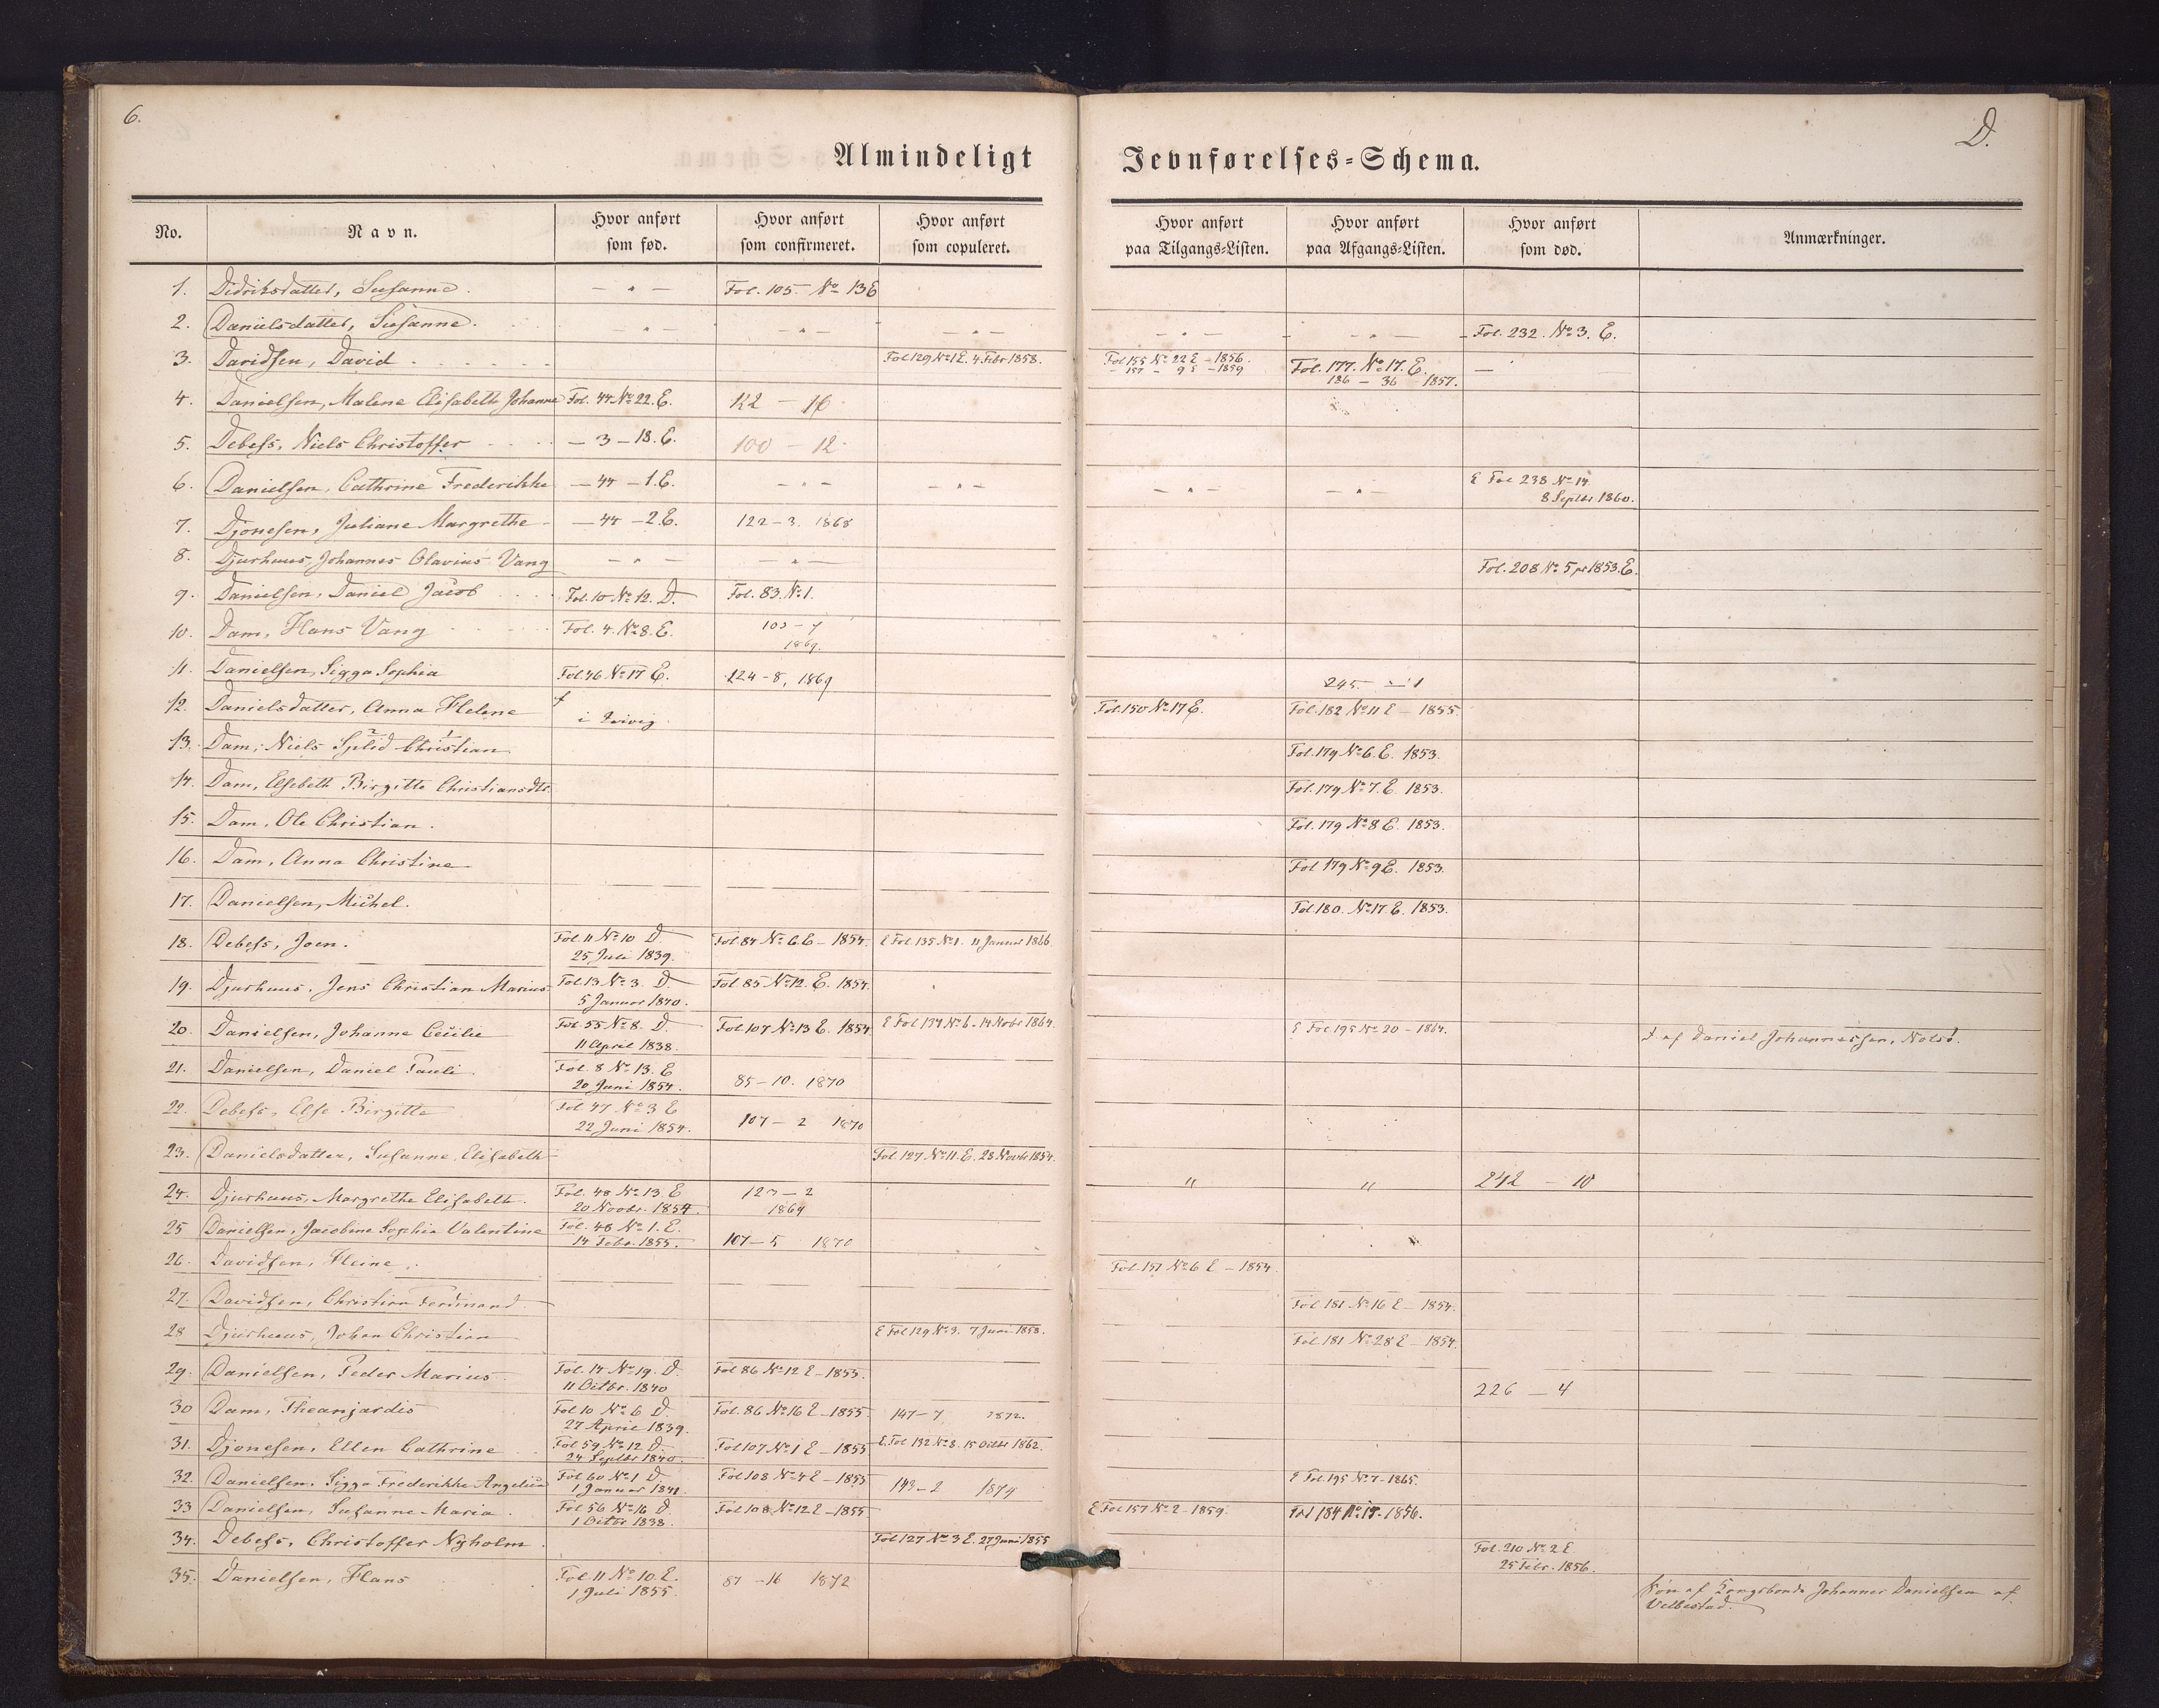 6.
D.
Almindeligt Jevnførelses-Schema.
No. Navn. Hvor anført som fød. Hvor anført som confirmeret. Hvor anført som copuleret. Hvor anført paa Tilgangs-Listen. Hvor anført paa Afgangs-Listen. Hvor anført som død. Anmærkninger.
1. Didriksdatter, Susanne. – " – Fol. 105. No 13 E
2. Danielsdatter, Susanne. – " – – " – – " – – " – – " – Fol. 232. No 3. E.
3. Davidsen, David Fol 129 No 1 E. 4 Febr 1858. Fol 155 No 22 E – 1856. Fol. 177. No 17. E. —
– 157 – 9 E – 1859 186 – 36 1857.
4. Danielsen, Malene Elisabeth Johanne Fol. 44 No 22. E. 122 – 16
5. Debess, Niels Christoffer — 3 – 18. E. 100 – 12
6. Danielsen, Cathrine Frederikke — 44 – 1. E. – " – – " – – " – – " – E Fol 238 No 14
8 Septbr 1860.
7. Djonesen, Juliane Margrethe — 44 – 2. E. 122 – 3. 1868
8. Djurhuus, Johannes Olavius Vang – " – – " – Fol. 208 No 5 pr 1853. E.
9. Danielsen, Daniel Jacob Fol. 10 No 12. D. Fol. 83. No 1.
10. Dam, Hans Vang Fol. 4. No 8. E. 103 – 7
1869.
11. Danielsen, Sigga Sophia Fol 46 No 17 E. 124 – 8, 1869 245. – 1
12. Danielsdatter, Anna Helene f Fol. 150 No 17 E. Fol. 182 No 11 E – 1855.
i
13. Dam, Niels Splid Christian Fol. 179 No 6. E. 1853.
14. Dam, Elsebeth Birgitte Christiansdtr. Fol. 179 No 7. E. 1853.
15. Dam, Ole Christian. Fol. 179 No 8 E. 1853.
16. Dam, Anna Christine Fol 179 No 9 E. 1853.
17. Danielsen, Michel. Fol 180. No 17. E. 1853.
18. Debess, Joen. Fol. 11 No 10 D. Fol. 84 No 6 E – 1854. E Fol. 135 No 1. 11 Januar 1866.
25 Juli 1839.
19. Djurhuus, Jens Christian Marius Fol 13 No 3. D. Fol 85 No 12. E. 1854.
5 Januar 1840.
20. Danielsen, Johanne Cecilie Fol. 55 No 8. D. Fol 107 No 13 E. 1854 E Fol 134 No 6. 14 Novbr 1864. E Fol 195 No 20 – 1864. D. af Daniel Johannessen, Nolsö.
11 April 1838.
21. Danielsen, Daniel Pauli. Fol. 8 No 13. E 85 – 10. 1870
20 Juni 1854.
22. Debess, Else Birgitte Fol 47 No 3 E 107 – 2 1870
22 Juni 1854.
23. Danielsdatter, Susanne Elisabeth Fol 127 No 11. E. 28 Novbr 1854. " " 242 – 10
24. Djurhuus, Margrethe Elisabeth. Fol. 48 No 13 E 123 – 2
20 Novbr. 1854. 1869
25 Danielsen, Jacobine Sophie Valentine Fol. 48 No 1. E. 107 – 5 1870
14 Febr. 1855.
26. Davidsen, Heine Fol 151 No 6 E – 1854.
27. Davidsen, Christian Ferdinand Fol 181 No 16 E – 1854.
28 Djurhuus, Johan Christian E Fol 129 No 3. 7 Juni 1858. Fol. 181 No 28 E – 1854.
29. Danielsen, Peder Marius Fol. 14 No 19. D. Fol 86 No 12 E – 1855. 226 – 4
11 Octbr. 1840
30 Dam, Theanjardis Fol 10 No 6 D. Fol. 86 No 16 E – 1855. 147 – 7 1872.
27 April 1839.
31. Djonesen, Ellen Cathrine Fol 59 No 12 D. Fol 107 No 1 E – 1855 E Fol 132 No 8. 15 Octbr 1862.
24 Septbr 1840.
32. Danielsen, Sigga Frederikke Angelica Fol 60 No 1 D. Fol 108 No 4 E – 1855 149 – 2 1874 E Fol. 195 No 7 – 1865.
1 Januar 1841.
33 Danielsen, Susanne Maria. Fol 56 No 16 D. Fol 108 No 12 E – 1855. E Fol 157 No 2 – 1859. Fol 184 No 15 – 1856.
1 Octbr 1838.
34. Debess, Christoffer Nyholm. Fol 127 No 3 E. 27 Juni 1855 Fol. 210 No 2 E
25 Febr. 1856.
35. Danielsen, Hans Fol. 11 No 10. E. 87 – 16 1872 Søn af Kongsbonde Johannes Danielsen af
1 Juli 1855. Velbestad.